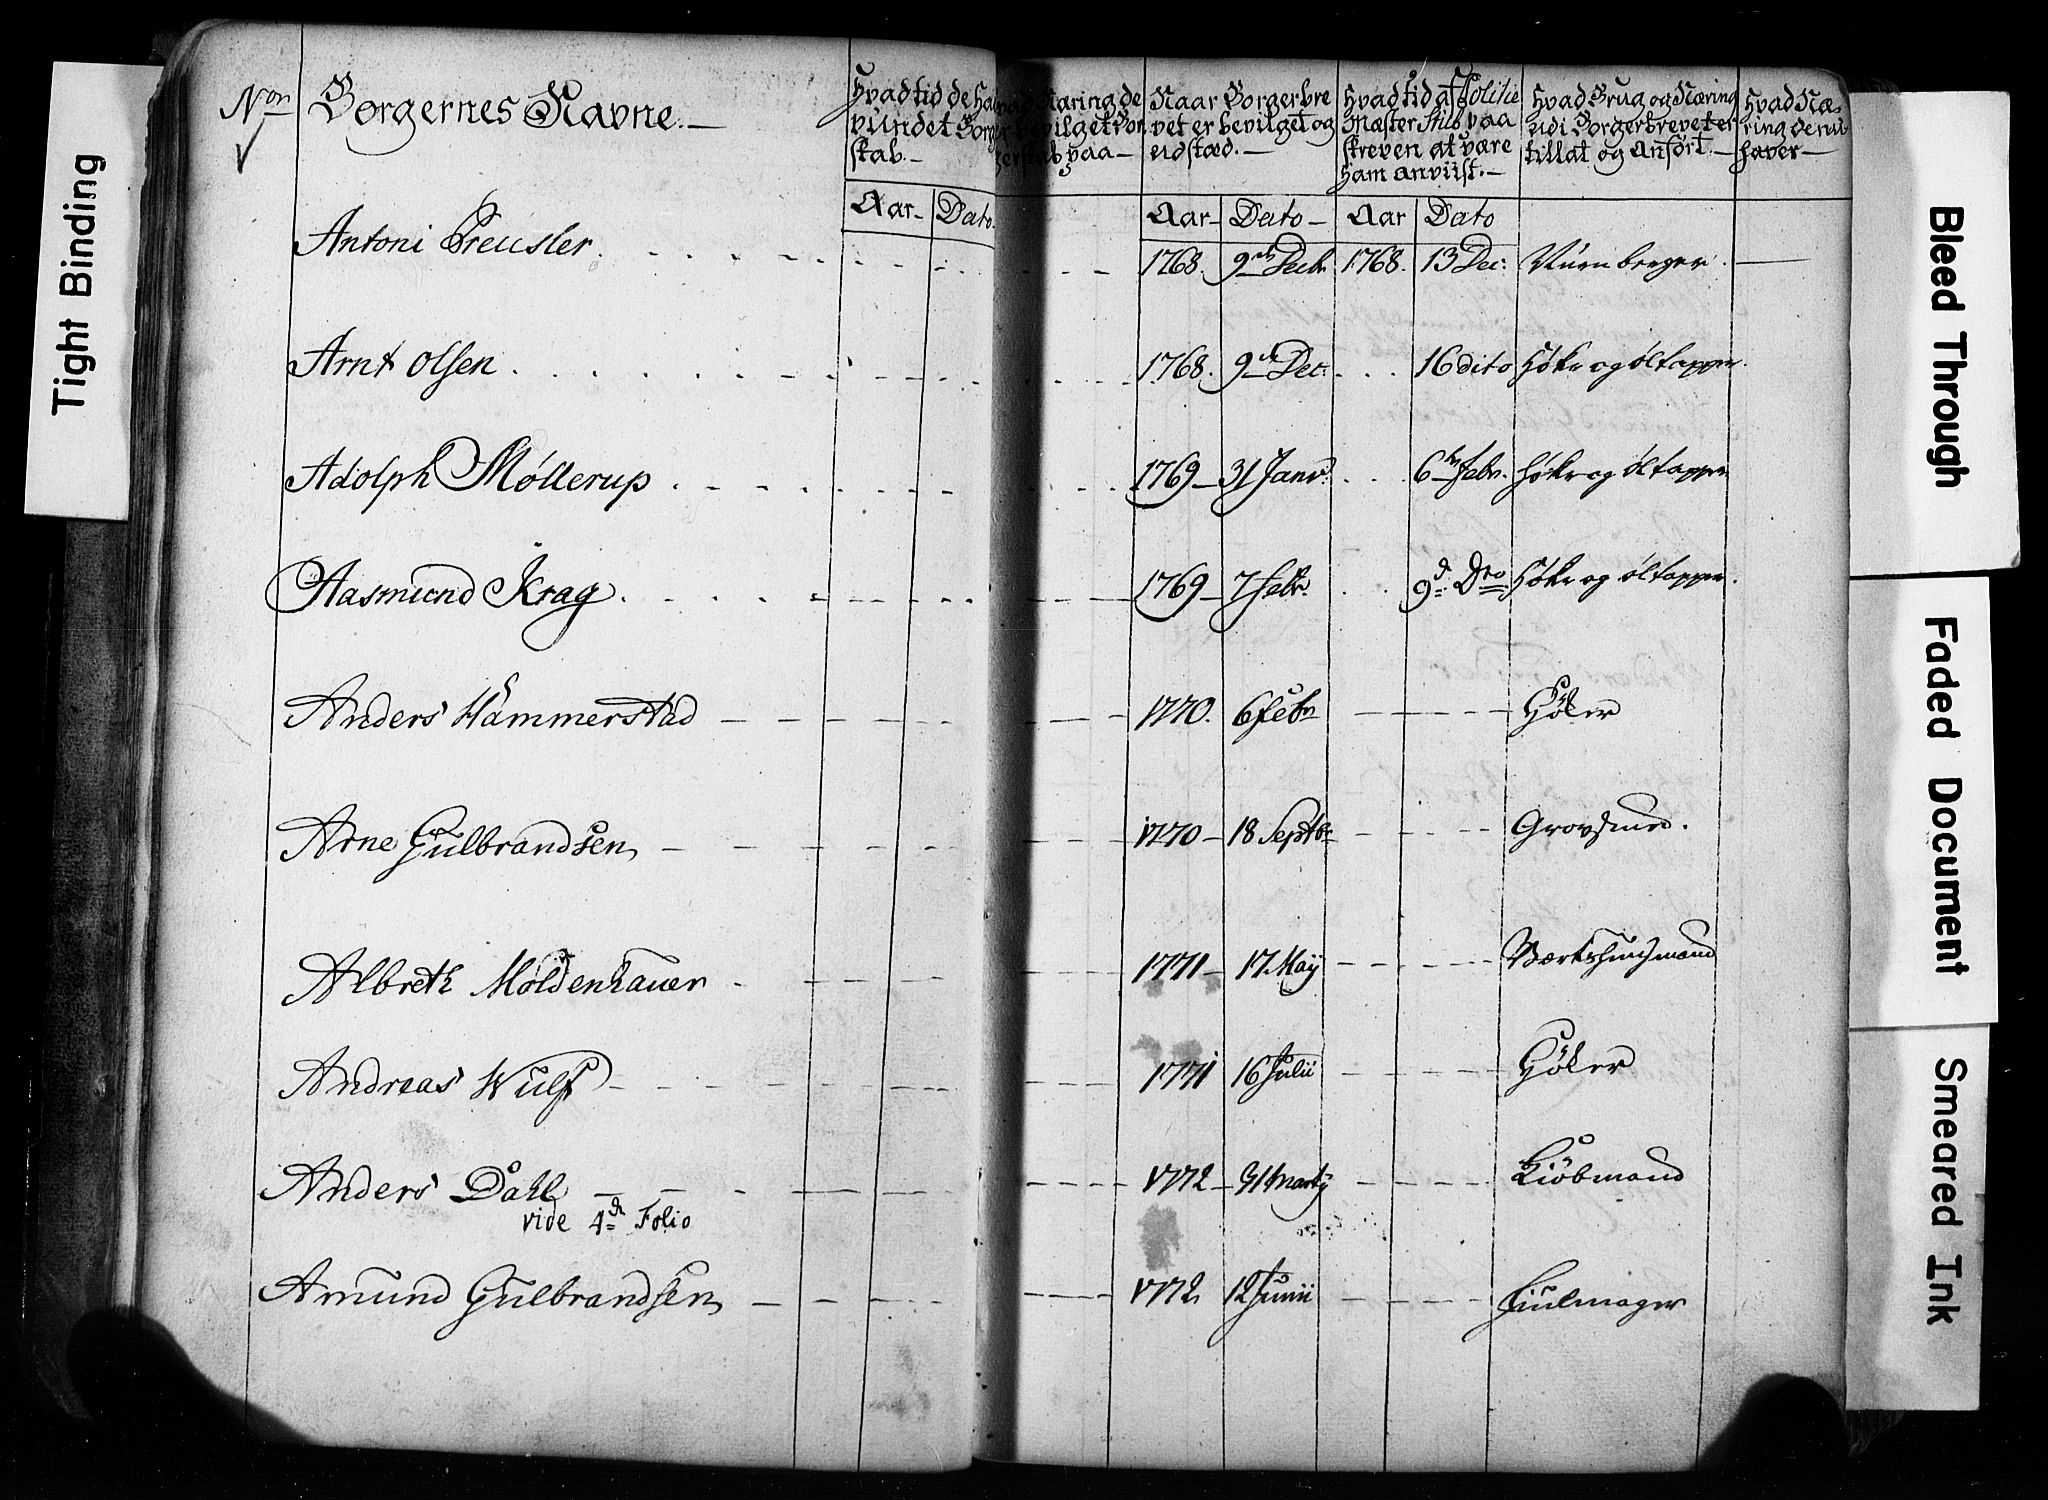 Tight Binding
Bleed Through
Faded Document
Smeared Ink
Non
Borgernes Navne.
Hvad tid de Ha
vundet Borger
skab.
Aar Dato
Næring de
bevilget Bor
gerskab paa
Naar Borgerbre
vet er bevilget og
udstæd.
Aar Dato
Hvad tid af Politie
Mæster paa
skreven at være
ham anviist.
Aar Dato
Hvad Brug og Næring
udi Borgerbrevet er
tillat og Anfört.
Hvad Næ
ring de nu
haver
Antoni Preusler 1768. 9 Decbr 1768. 13 Dec: Nürnberger.
Arnt Olsen 1768. 9 Dec: 16 dito Høker og øltapper.
Adolph Møllerup 1769 31 Janv: 6 Febr. Høker og øltapper
Aasmund Krag 1769 7 Febr. 9d Dto Høker og øltapper.
Anders Hammerstad 1770. 6 Febr Höker
Arne Gulbrandsen 1770 18 Septbr Grovsmed.
Albreth Moldenhauer 1771 17 May Værtshuusmand
Andreas Wulf 1771 16 Julii Höker
Anders Dahl 1772 31 Marty Kiöbmand
vide 4d Folio
Amund Gulbrandsen 1772 12 Junii Hiulmager